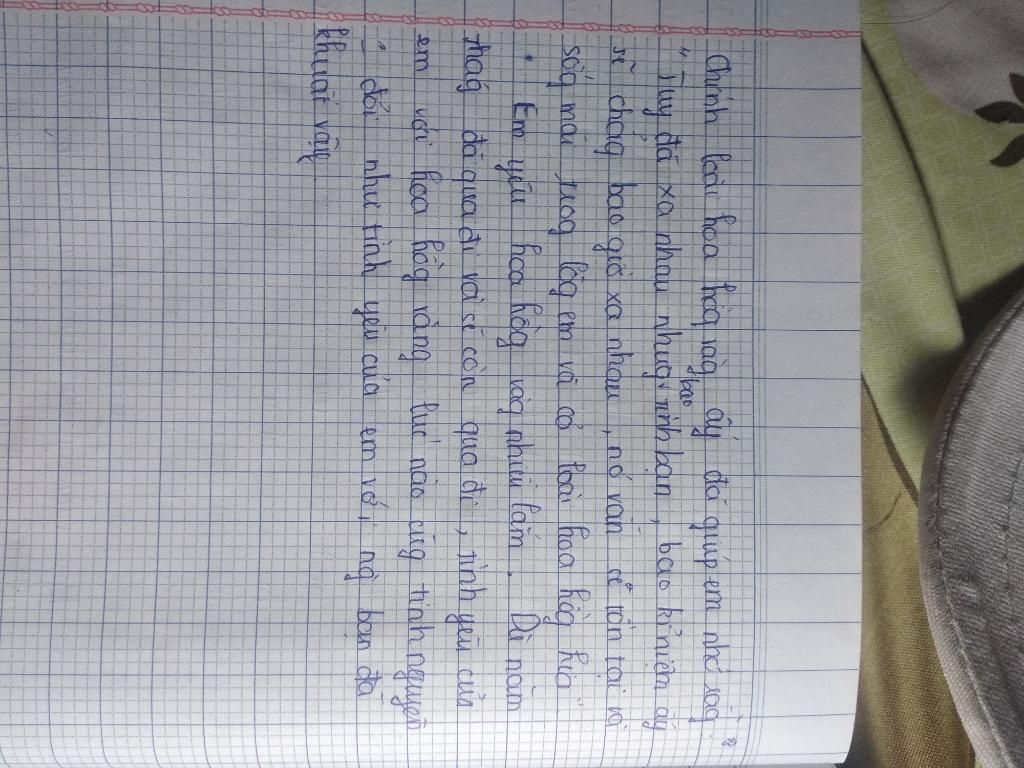 Chính loài hoa hồng vàg ấy đã giúp em nhớ rằg:
" Tuy đã xa nhau nhưg, tình bạn, bao kỉ niệm ấy
sẽ chẳg bao giờ xa nhau, nó vẫn sẽ tồn tại và
sốg mãi trog lòg em và cả loài hoa hồg kia".
Em yêu hoa hồg vàg nhiều lắm. Dù năm
thág đã qua đi và sẽ còn qua đi, tình yêu của
em với hoa hồg vàng lúc nào cũg tinh nguyên
đối như tình yêu của em với ng` bạn đã
khuất vậy.